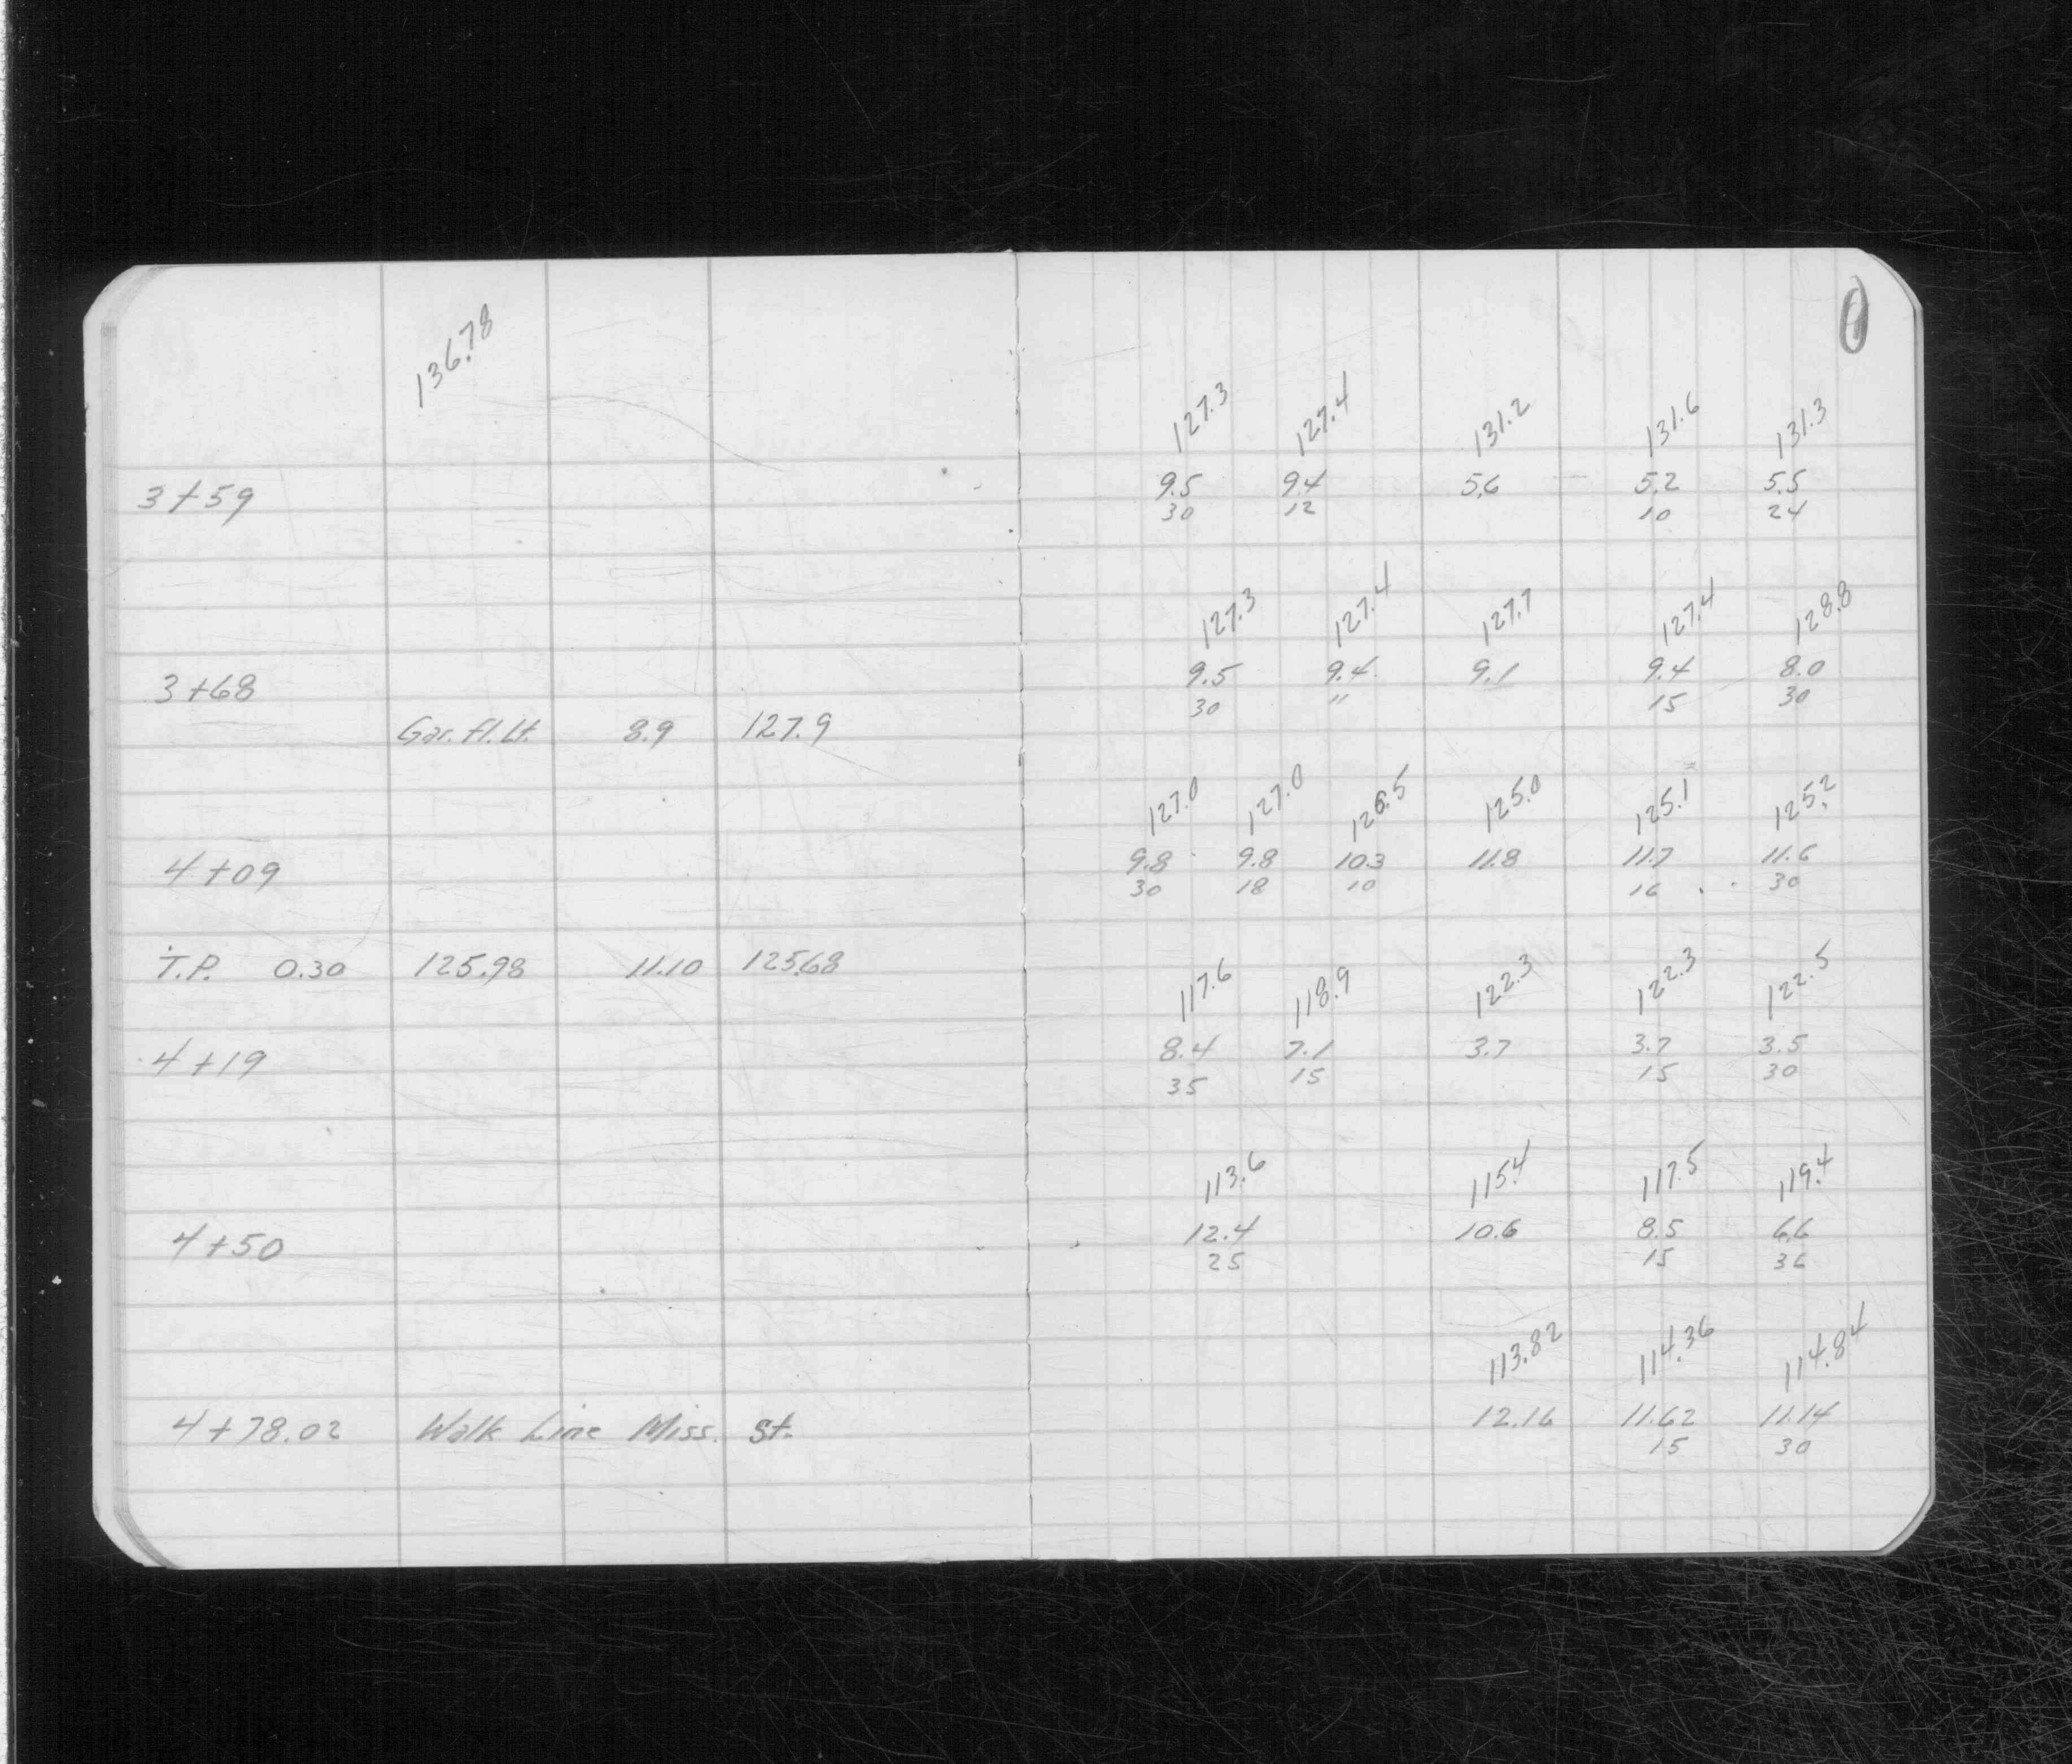 136.78
127.3 127.4 131.2 131.6 131.3
3+59 9.5 9.4 5.6 5.2 5.5
30 12 10 24
127.3 127.4 127.7 127.4 128.8
3+68 9.5 9.4 9.1 9.4 8.0
30 " 15 30
Gar. fl. Lt. 8.9 127.9
127.0 127.0 126.5 125.0 125.1 125.2
4+09 9.8 9.8 10.3 11.8 11.7 11.6
30 18 10 16 30
T.P. 0.30 125.98 11.10 125.68
117.6 118.9 122.3 122.3 122.5
4+19 8.4 7.1 3.7 3.7 3.5
35 15 15 30
113.6 115.4 117.5 119.4
4+50 12.4 10.6 8.5 6.6
25 15 36
113.82 114.36 114.84
4+78.02 Walk Line Miss. St. 12.16 11.62 11.14
15 30